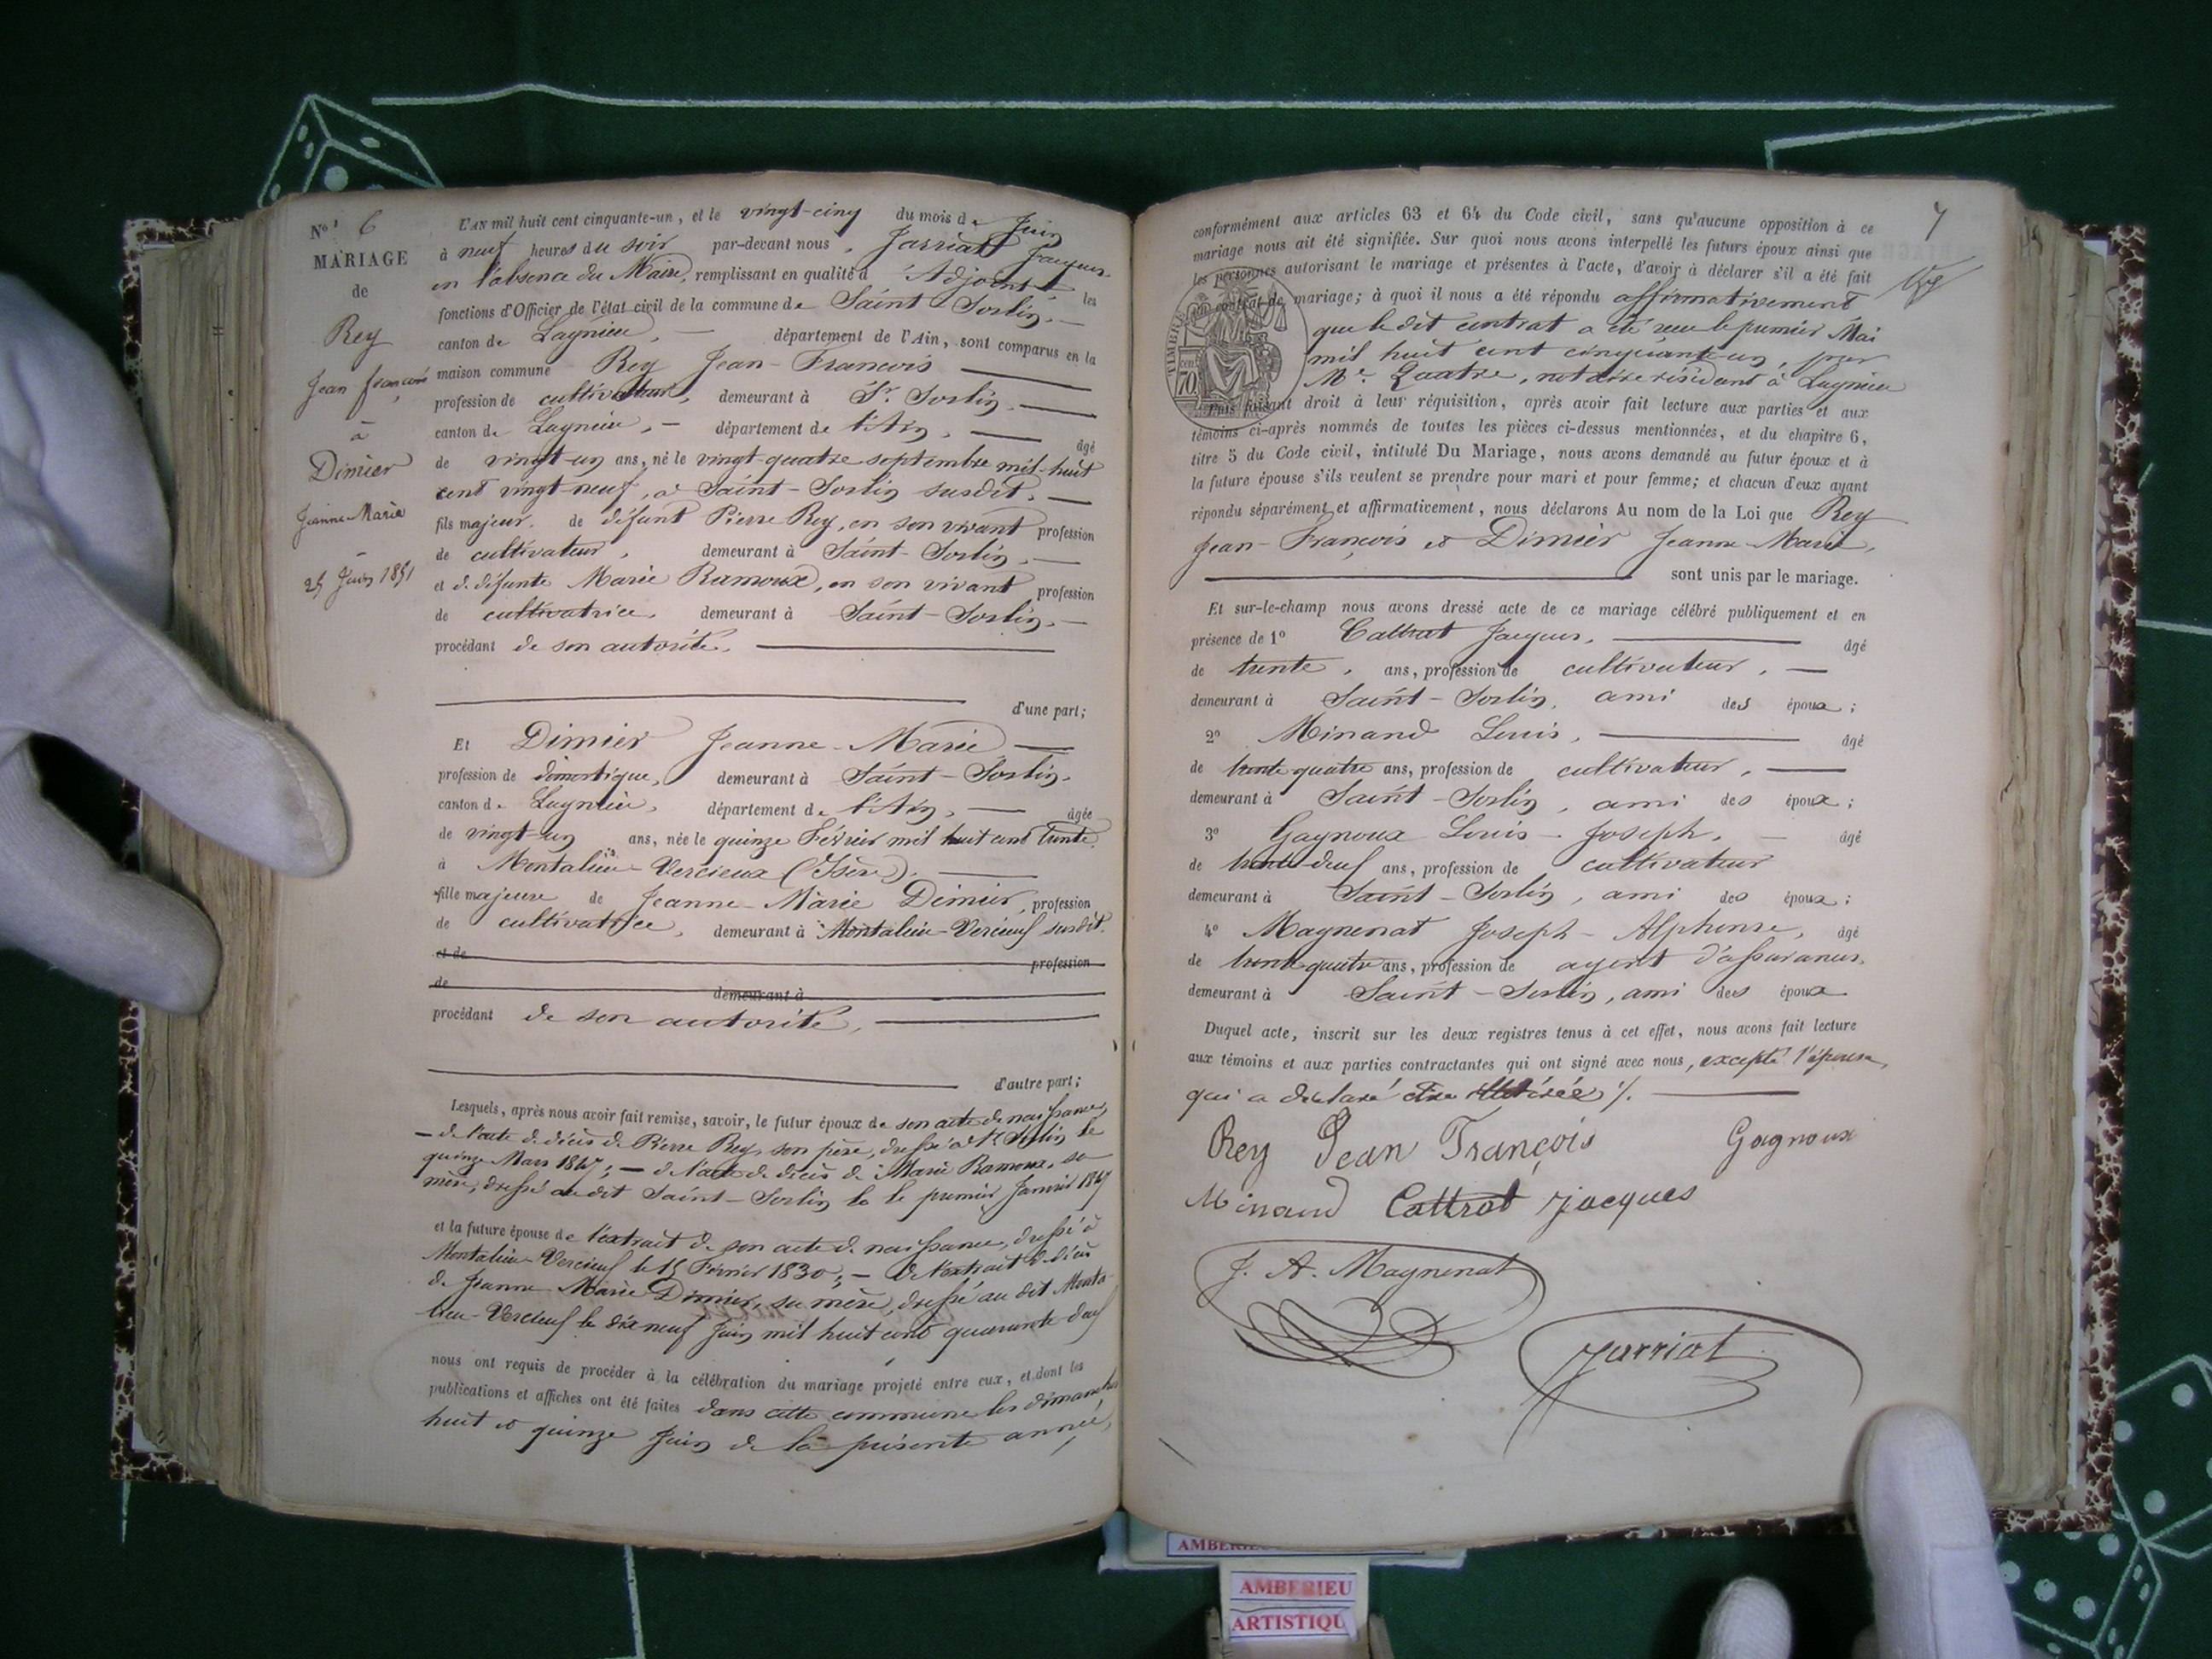 No 6
MARIAGE
de
Rey
Jean françois
à
Dimier
Jeanne-Marie
25 Juin 1851
L'AN mil huit cent cinquante-un, et le vingt-cinq du mois de Juin
à neuf heures du soir par-devant nous, Jarriat Jacques
en l'absence du Maire, remplissant en qualité d'Adjoint les
fonctions d'Officier de l'état civil de la commune de Saint-Sorlin,
canton de Lagnieu, département de l'Ain, sont comparus en la
maison commune Rey Jean-François
profession de cultivateur, demeurant à St. Sorlin,
canton de Lagnieu, département de l'Ain, âgé
de vingt-un ans, né le vingt-quatre septembre mil-huit
cent vingt-neuf, à Saint-Sorlin susdit,
fils majeur de défunt Pierre Rey, en son vivant profession
de cultivateur, demeurant à Saint-Sorlin,
et de défunte Marie Ramoux, en son vivant profession
de cultivatrice, demeurant à Saint-Sorlin,
procédant de son autorité,
d'une part;
Et Dimier Jeanne-Marie
profession de domestique, demeurant à Saint-Sorlin,
canton de Lagnieu, département de l'Ain, âgée
de vingt-un ans, née le quinze Février mil huit cent trente
à Montalieu-Vercieux (Isère),
fille majeure de Jeanne-Marie Dimier, profession
de cultivatrice, demeurant à Montalieu-Vercieux susdit.
et de profession
de demeurant à
procédant de son autorité,
d'autre part;
Lesquels, après nous avoir fait remise, savoir, le futur époux de son acte de naissance,
– de l'acte de décès de Pierre Rey, son père, dressé à St Sorlin le
quinze Mars 1847; – de l'acte de décès de Marie Ramoux, sa
mère, dressé au dit Saint-Sorlin le le premier Janvier 1847
et la future épouse de l'extrait de son acte de naissance, dressé à
Montalieu-Vercieux le 15 Février 1830; – de l'extrait de décès
de Jeanne-Marie Dimier, sa mère, dressé au dit Monta-
lieu-Vercieux le dix neuf Juin mil huit cent quarante-deux
nous ont requis de procéder à la célébration du mariage projeté entre eux, et dont les
publications et affiches ont été faites dans cette commune les dimanches
huit et quinze Juin de la présente année,
7
conformément aux articles 63 et 64 du Code civil, sans qu'aucune opposition à ce
mariage nous ait été signifiée. Sur quoi nous avons interpellé les futurs époux ainsi que
les personnes autorisant le mariage et présentes à l'acte, d'avoir à déclarer s'il a été fait
un contrat de mariage; à quoi il nous a été répondu affirmativement
que le dit contrat a été reçu le premier Mai
mil huit cent cinquante-un, par
Me. Quatre, notaire résidant à Lagnieu
TIMBRE
70 cen
Puis faisant droit à leur réquisition, après avoir fait lecture aux parties et aux
témoins ci-après nommés de toutes les pièces ci-dessus mentionnées, et du chapitre 6,
titre 5 du Code civil, intitulé Du Mariage, nous avons demandé au futur époux et à
la future épouse s'ils veulent se prendre pour mari et pour femme; et chacun d'eux ayant
répondu séparément et affirmativement, nous déclarons Au nom de la Loi que Rey
Jean-François et Dimier Jeanne-Marie,
sont unis par le mariage.
Et sur-le-champ nous avons dressé acte de ce mariage célébré publiquement et en
présence de 1º Cattrat Jacques, âgé
de trente, ans, profession de cultivateur,
demeurant à Saint-Sorlin, ami des époux;
2º Minand Louis, âgé
de trente quatre ans, profession de cultivateur,
demeurant à Saint-Sorlin, ami des époux;
3º Gagnoux Louis-Joseph, âgé
de trente-deux ans, profession de cultivateur
demeurant à Saint-Sorlin, ami des époux;
4º Magnenat Joseph-Alphonse, âgé
de trente quatre ans, profession de agent d'assurances
demeurant à Saint-Sorlin, ami des époux
Duquel acte, inscrit sur les deux registres tenus à cet effet, nous avons fait lecture
aux témoins et aux parties contractantes qui ont signé avec nous, excepté l'épouse,
qui a déclaré être illétérée ./.
Rey Jean François Gagnoux
Minand Cattrat jacques
J. A. Magnenat
Jarriat
AMBERIEU
AMBERIEU
ARTISTIQU